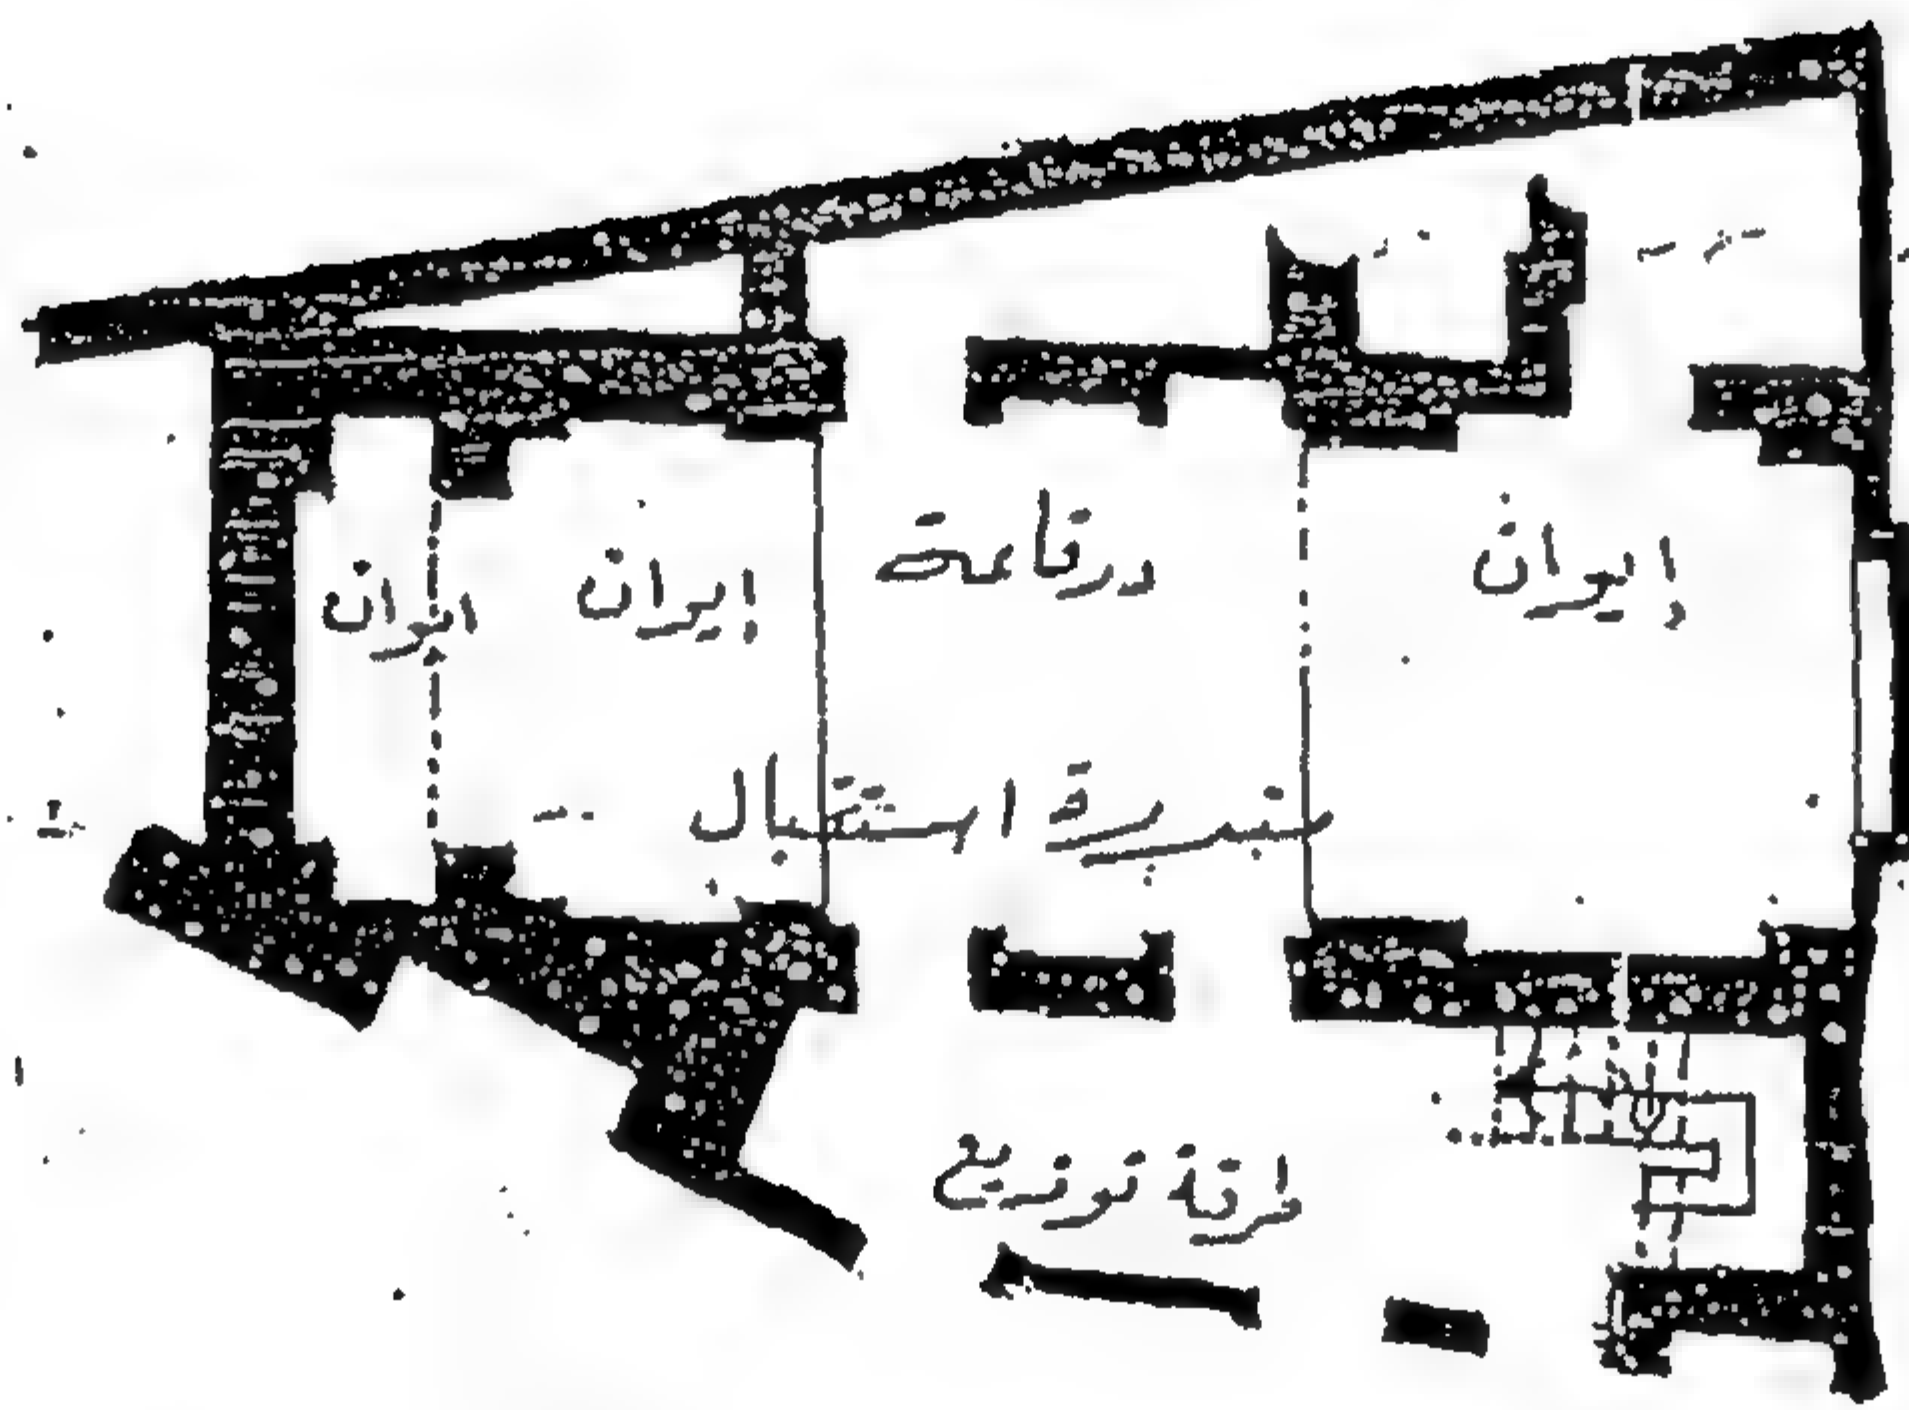 إيوان
درقاعة
إيوان
ايوان
مندررة استقبال
طرقة توزيع